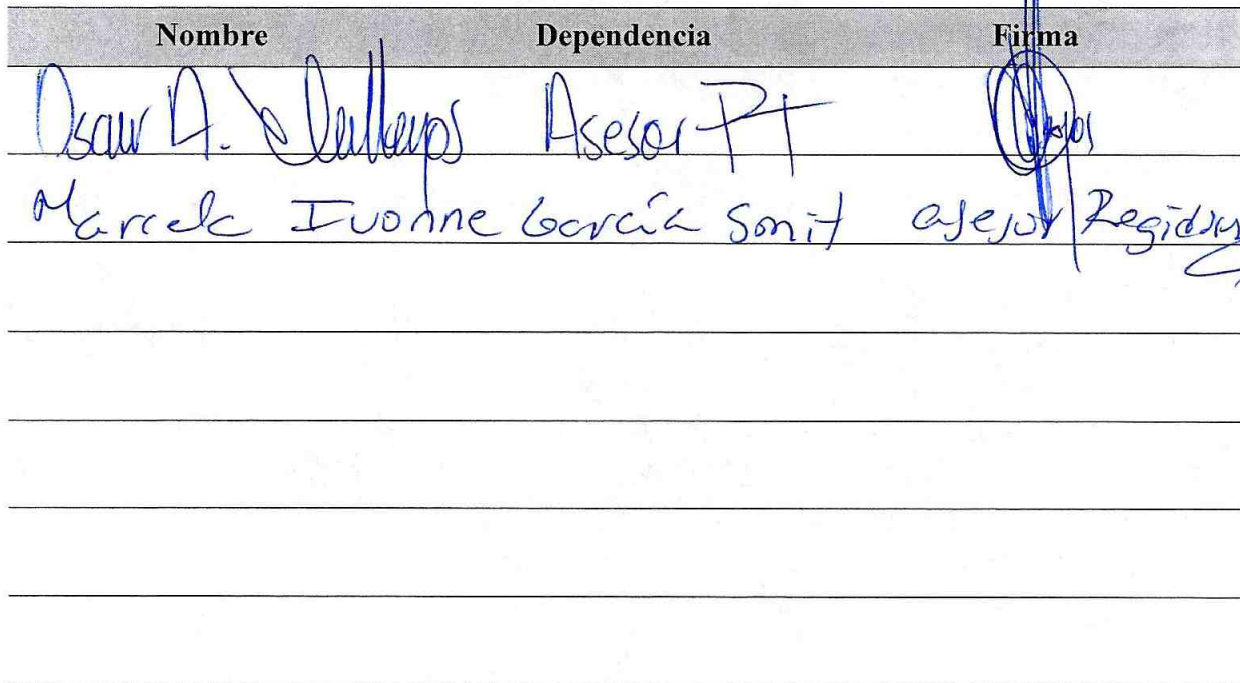 Nombre Dependencia Firma
Oscar A. Asesor PT
Marcela Ivonne García Smit asesor Regidor